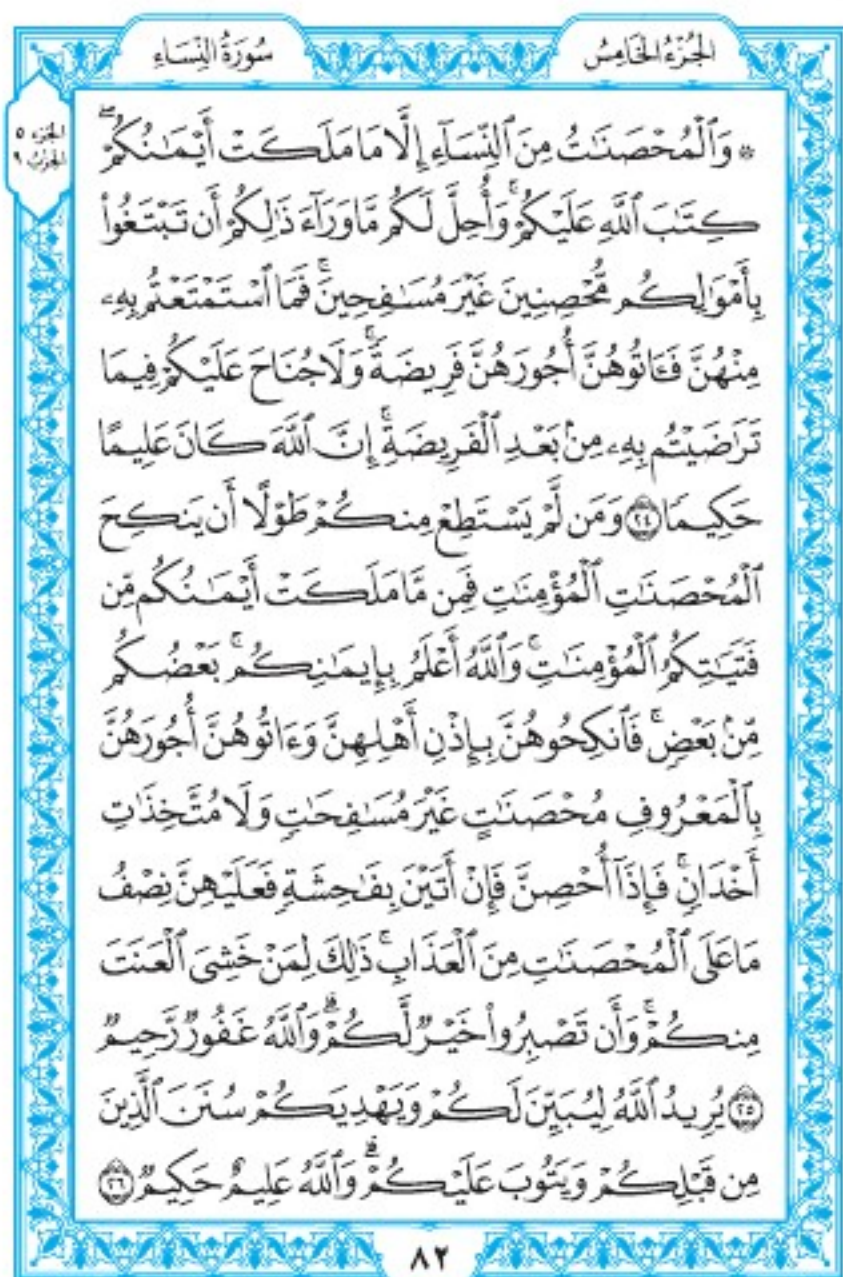 سُورَةُ النِّسَاءِ
الجُزْءُ الخَامِسُ
الجزء ٥
الحزب ٩
۞ وَٱلْمُحْصَنَـٰتُ مِنَ ٱلنِّسَآءِ إِلَّا مَا مَلَكَتْ أَيْمَـٰنُكُمْ ۖ
كِتَـٰبَ ٱللَّهِ عَلَيْكُمْ ۚ وَأُحِلَّ لَكُم مَّا وَرَآءَ ذَٰلِكُمْ أَن تَبْتَغُوا۟
بِأَمْوَٰلِكُم مُّحْصِنِينَ غَيْرَ مُسَـٰفِحِينَ ۚ فَمَا ٱسْتَمْتَعْتُم بِهِۦ
مِنْهُنَّ فَـَٔاتُوهُنَّ أُجُورَهُنَّ فَرِيضَةً ۚ وَلَا جُنَاحَ عَلَيْكُمْ فِيمَا
تَرَٰضَيْتُم بِهِۦ مِنۢ بَعْدِ ٱلْفَرِيضَةِ ۚ إِنَّ ٱللَّهَ كَانَ عَلِيمًا
حَكِيمًا ٢٤ وَمَن لَّمْ يَسْتَطِعْ مِنكُمْ طَوْلًا أَن يَنكِحَ
ٱلْمُحْصَنَـٰتِ ٱلْمُؤْمِنَـٰتِ فَمِن مَّا مَلَكَتْ أَيْمَـٰنُكُم مِّن
فَتَيَـٰتِكُمُ ٱلْمُؤْمِنَـٰتِ ۚ وَٱللَّهُ أَعْلَمُ بِإِيمَـٰنِكُم ۚ بَعْضُكُم
مِّنۢ بَعْضٍ ۚ فَٱنكِحُوهُنَّ بِإِذْنِ أَهْلِهِنَّ وَءَاتُوهُنَّ أُجُورَهُنَّ
بِٱلْمَعْرُوفِ مُحْصَنَـٰتٍ غَيْرَ مُسَـٰفِحَـٰتٍ وَلَا مُتَّخِذَٰتِ
أَخْدَانٍ ۚ فَإِذَآ أُحْصِنَّ فَإِنْ أَتَيْنَ بِفَـٰحِشَةٍ فَعَلَيْهِنَّ نِصْفُ
مَا عَلَى ٱلْمُحْصَنَـٰتِ مِنَ ٱلْعَذَابِ ۚ ذَٰلِكَ لِمَنْ خَشِىَ ٱلْعَنَتَ
مِنكُمْ ۚ وَأَن تَصْبِرُوا۟ خَيْرٌ لَّكُمْ ۗ وَٱللَّهُ غَفُورٌ رَّحِيمٌ
٢٥ يُرِيدُ ٱللَّهُ لِيُبَيِّنَ لَكُمْ وَيَهْدِيَكُمْ سُنَنَ ٱلَّذِينَ
مِن قَبْلِكُمْ وَيَتُوبَ عَلَيْكُمْ ۗ وَٱللَّهُ عَلِيمٌ حَكِيمٌ ٢٦
٨٢